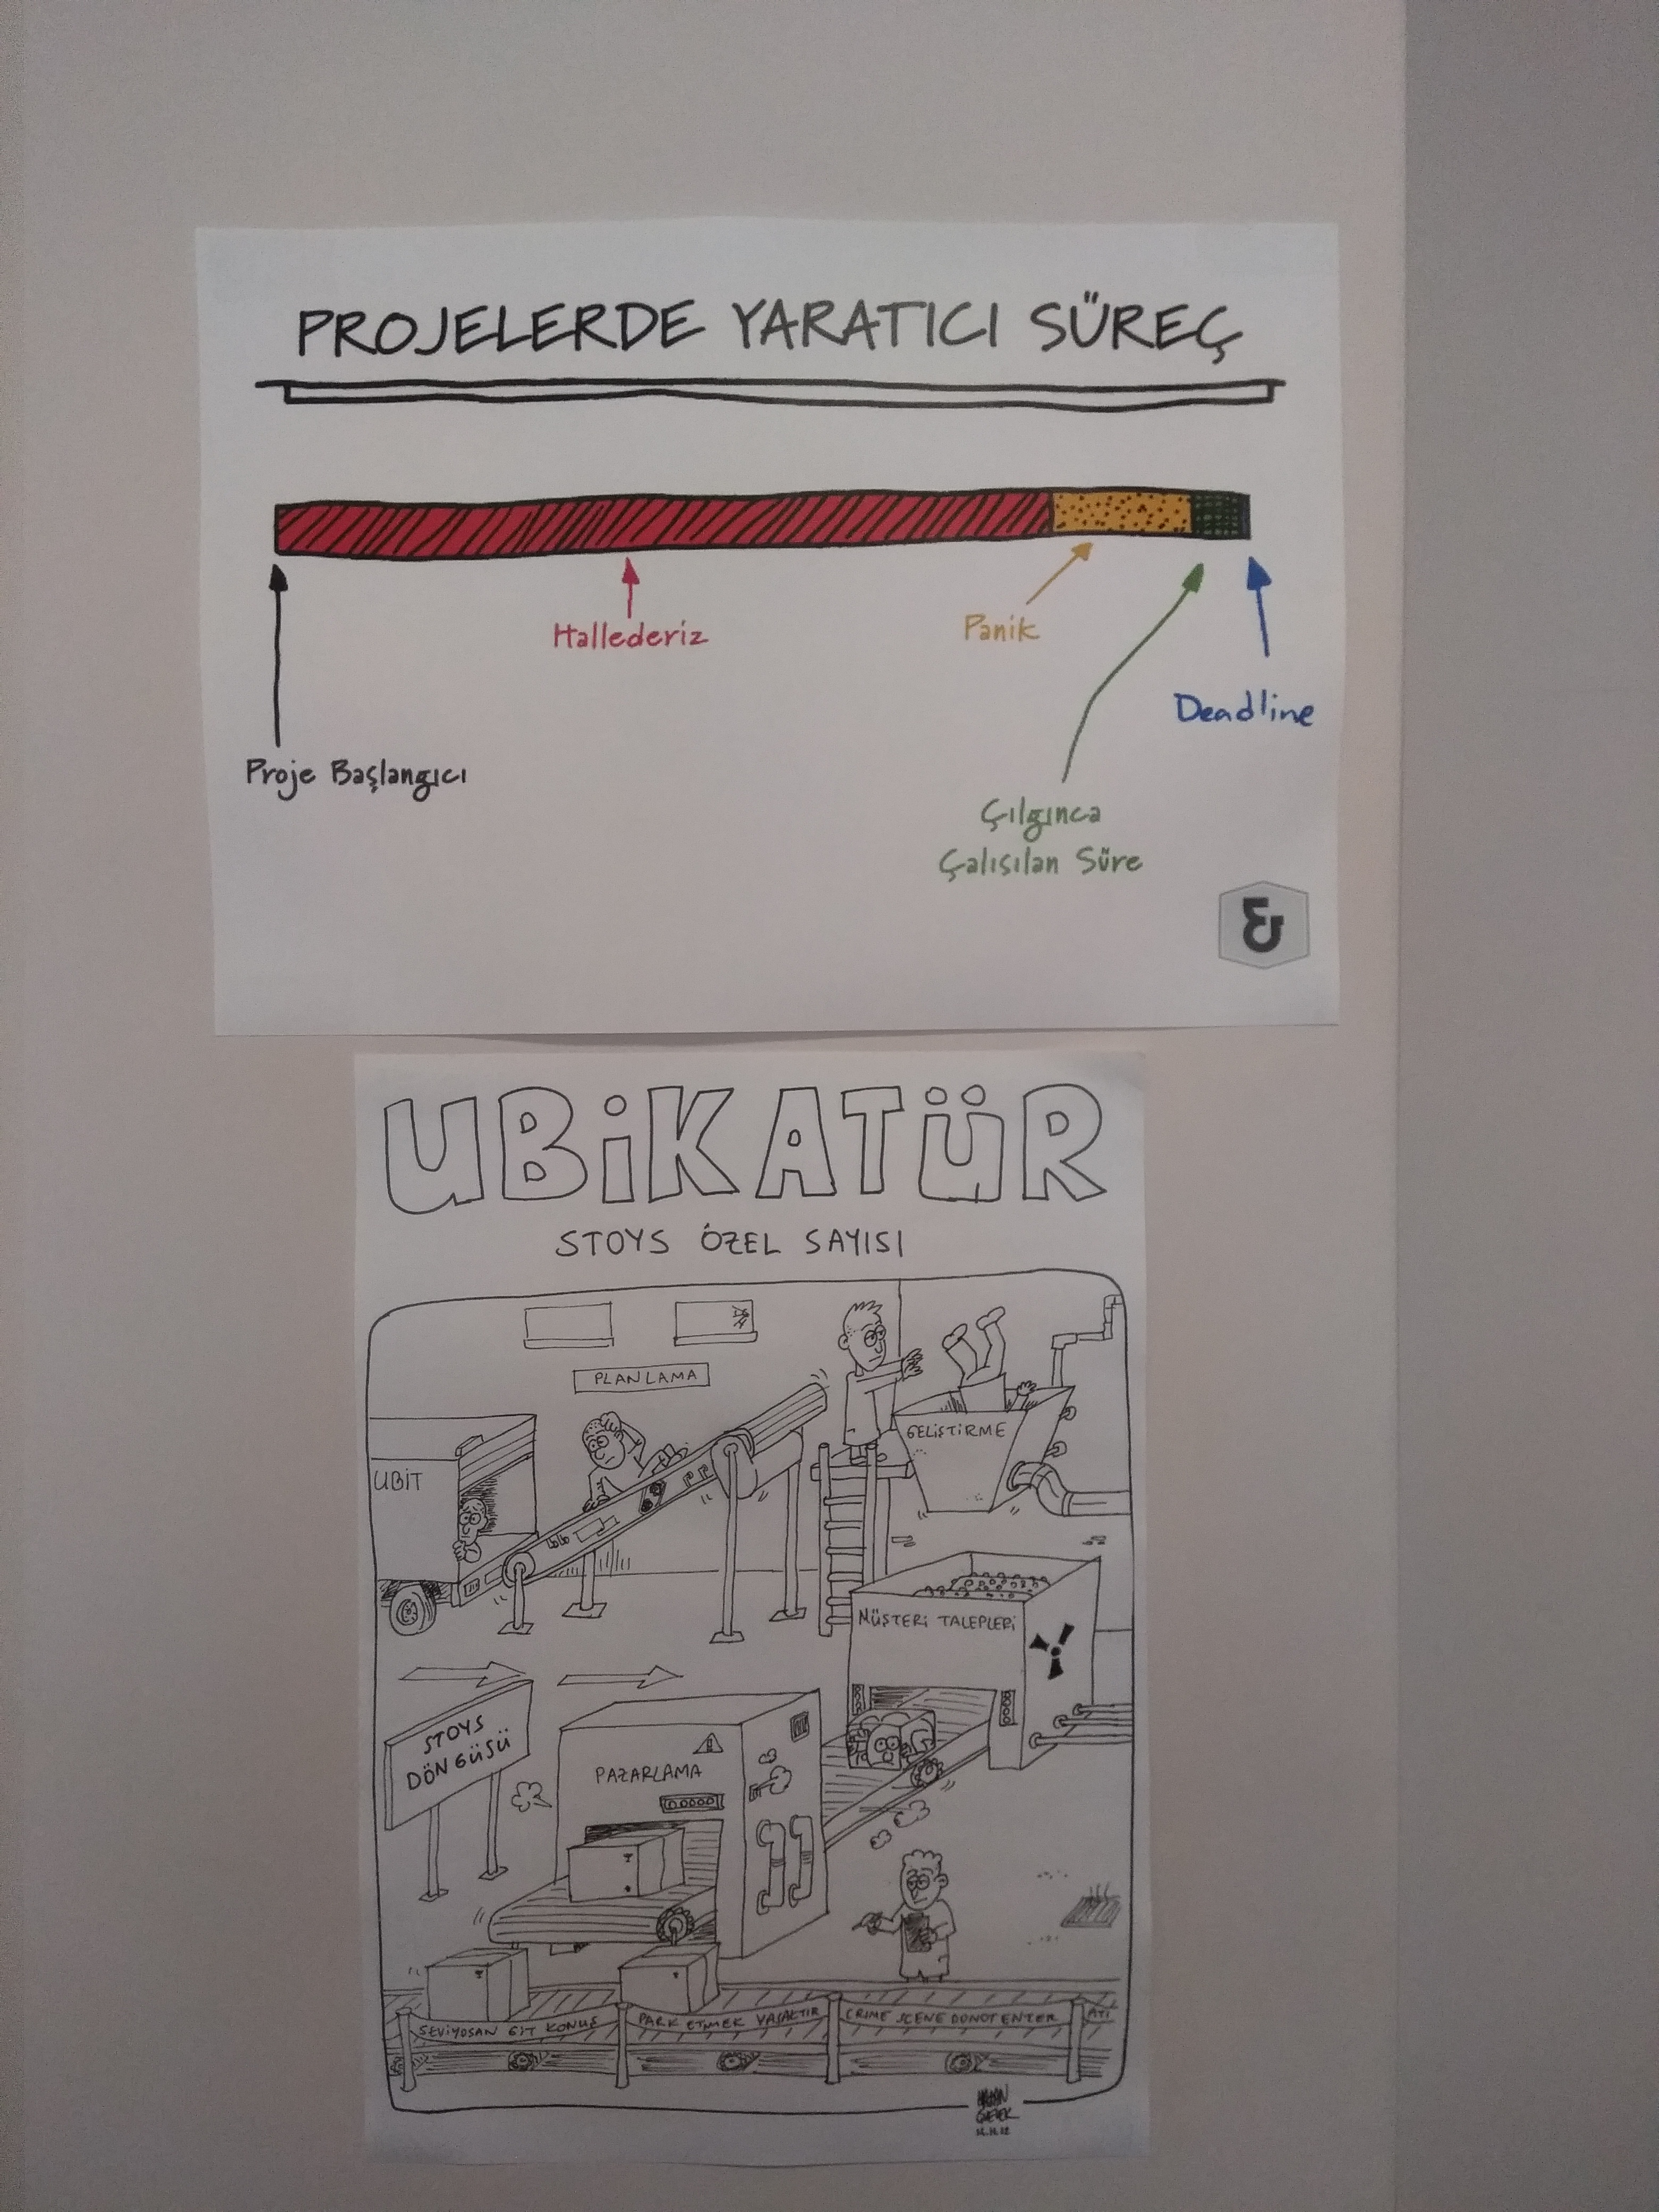 PROJELERDE YARATICI SÜREÇ
Hallederiz
Panik
Deadline
Proje Başlangıcı
Çılgınca
Çalışılan Süre
UBİKATÜR
STOYS ÖZEL SAYISI
PLANLAMA
GELİŞTİRME
UBİT
MÜŞTERİ TALEPLERİ
STOYS
DÖNGÜSÜ
PAZARLAMA
SEVİYOSAN GİT KONUŞ
PARK ETMEK YASAKTIR
CRIME SCENE DO NOT ENTER